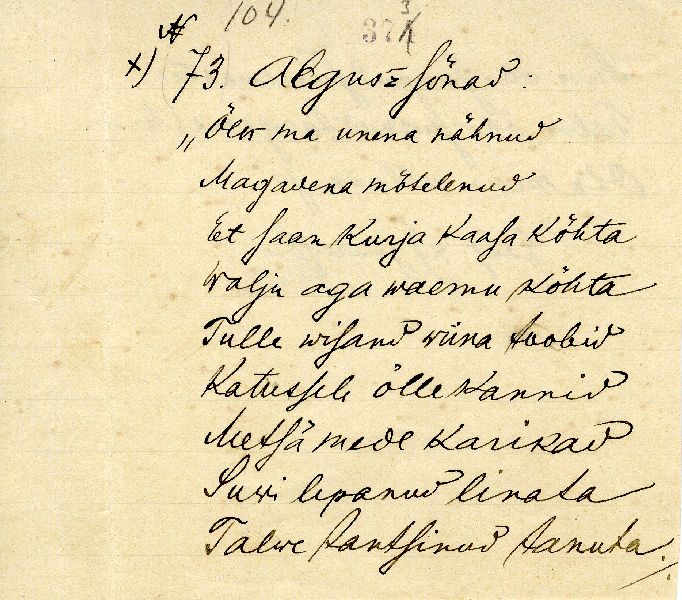 104.
373
N
x) 73. Algus-sõnad:
„Öles ma unena nähnud
Magadena mõtelenud
Et saan kurja kaasa kõhta
Walju aga waemu kõhta
Tulle wisand wiina toobid
Katussele ölle kannid
Metsä mede karikad
Suwi lepanud linata
Talwe tantsinud tanuta.